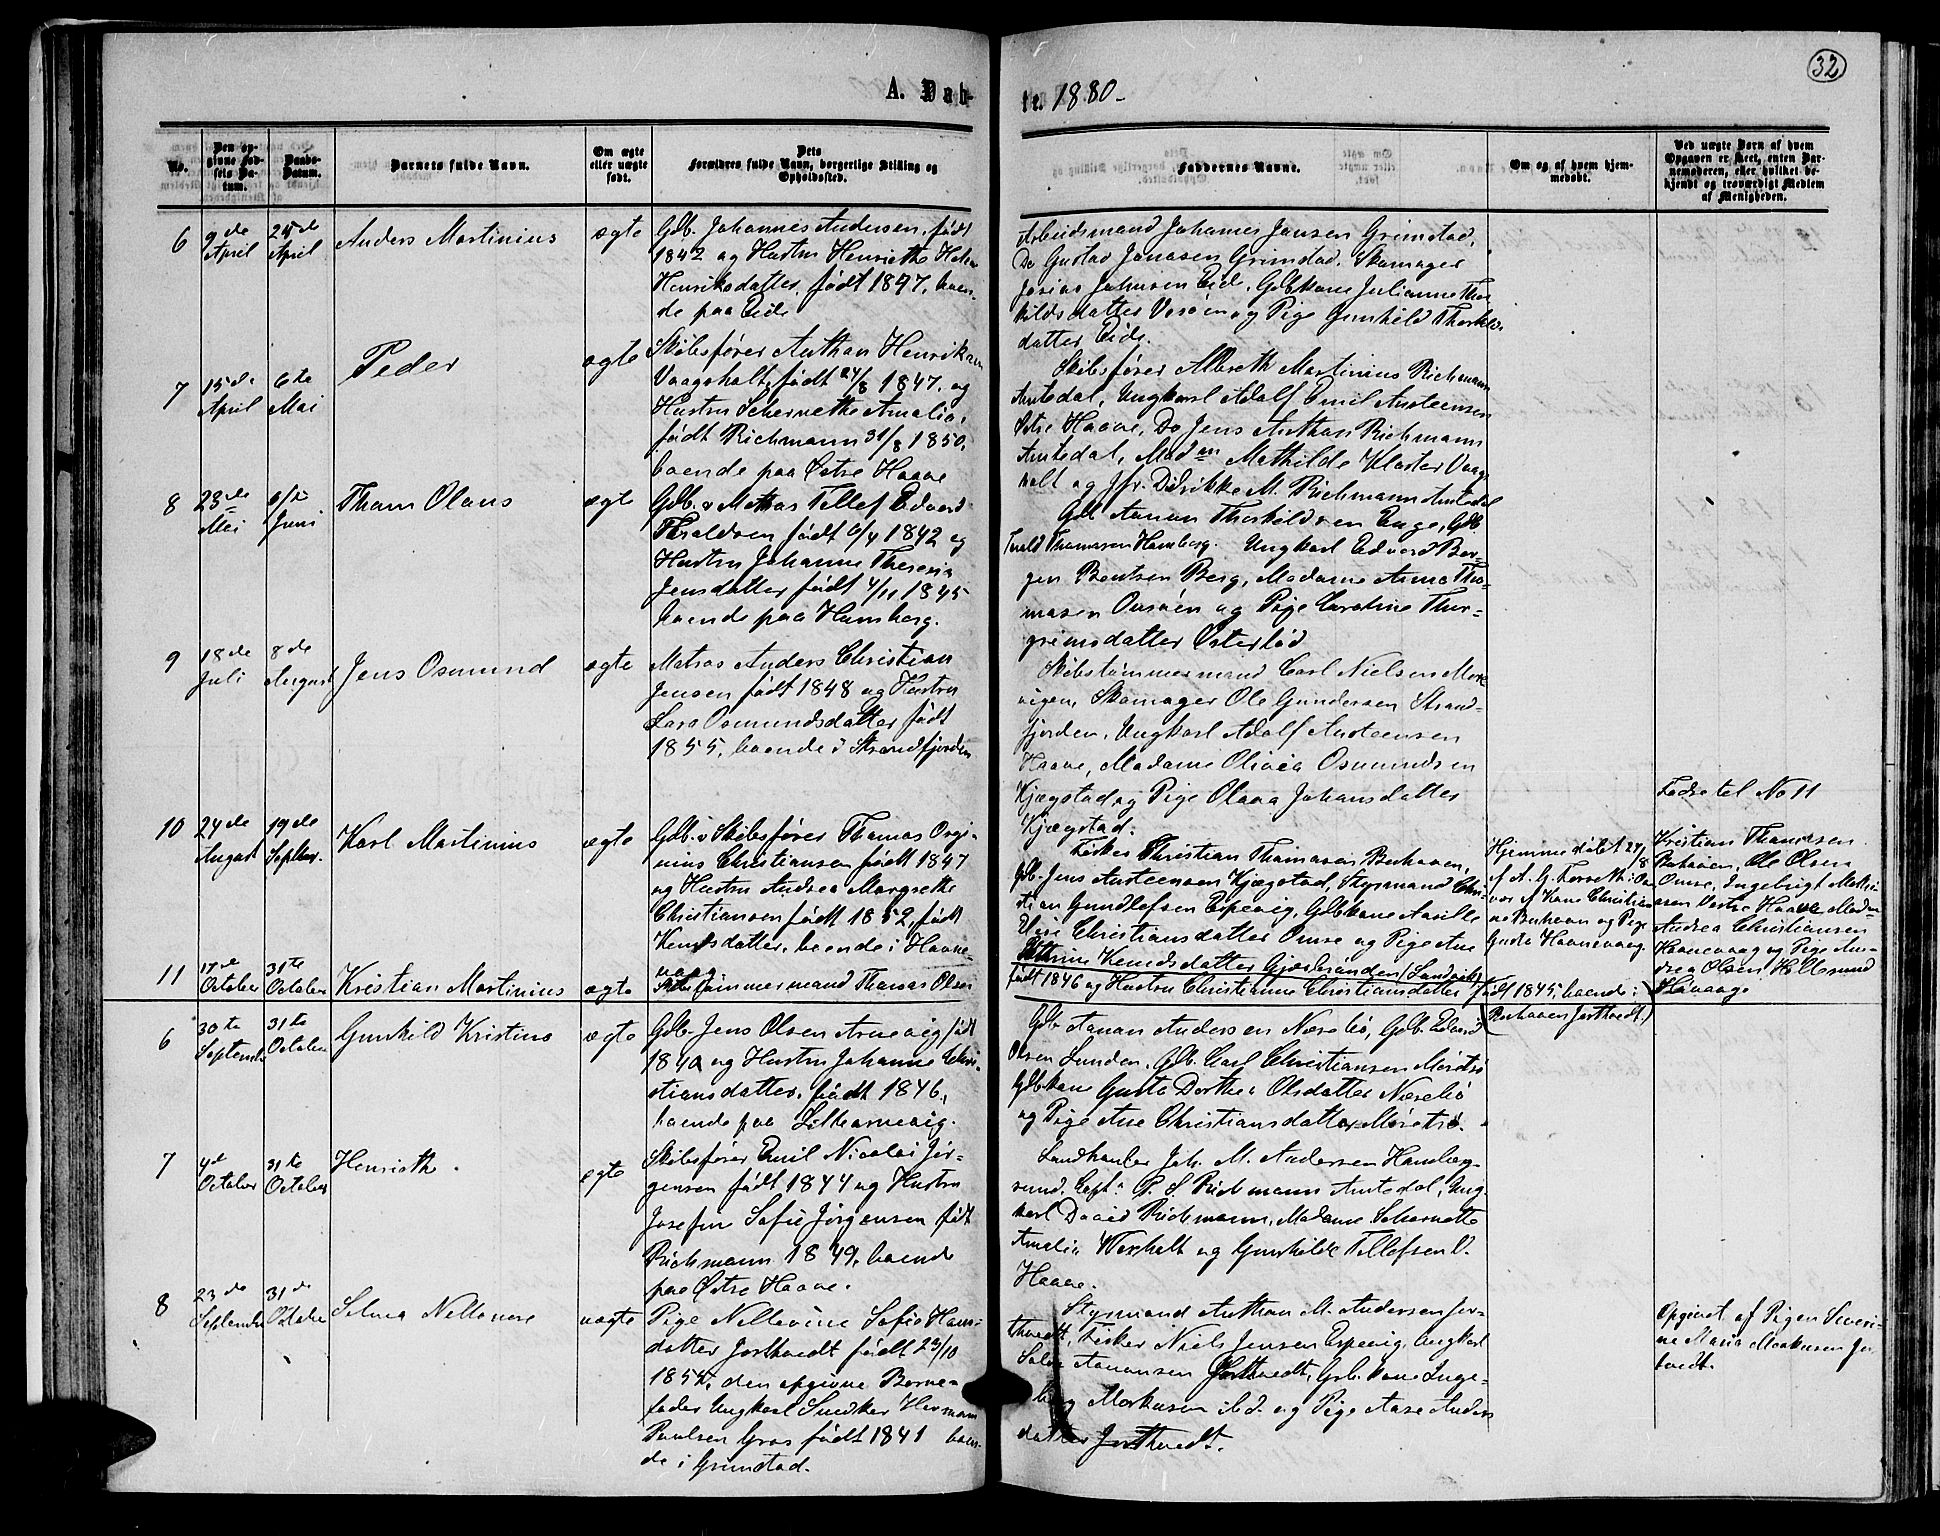 32
A. Dåb-
te. 1880-
No.
Den op-
givne Fød-
sels Da-
tum.
Daabs-
Datum.
Barnets fulde Navn.
Om ægte
eller uægte
født.
Dets
Forældres fulde Navn, borgerlige Stilling og
Opholdssted.
Faddernes Navne.
Om og af hvem hjem-
medøbt.
Ved uægte Børn af hvem
Opgaven er skeet, enten Bar-
nemoderen, eller hvilket be-
kjendt og troværdigt Medlem
af Menigheden.
6
9de
April
25de
April
Anders Martinius
ægte
Gdb. Johannes Andersen, født
1842 og Hustru Henriette
Henriksdatter, født 1847, boen-
de paa Eide
Arbeidsmand Johannes Jansen Grimstad,
Do Gustav Jonasen Grimstad, Skomager
Josias Johnsen Eide, Gdbkone Julianne Thor-
kildsdatter og Pige Gunhild Thorkilds-
datter Eide.
7
15de
April
6te
Mai
Peder
ægte
Skibsfører Anthon Henriksen
Vaagsholt, født 24/8 1847, og
Hustru Schernette Amalia,
født Richmann 31/8 1850,
boende paa Østre Haave
Skibsfører Albreth Martinius Richmann
Amtedal, Ungkarl Adolf Emil Austeensen
Østre Haave, Do Jens Anthon Richmann
Amtedal, Madm Mathilde Kloster Vaags-
holt og Jfr. Didrikke M. Richmann Amtedal
8
23de
Mai
6/
Juni
Tham Olaus
ægte
Gdb. & Matros Tellef Edvard
Tharaldsen født 6/4 1842 og
Hustru Johanne Theresia
Jensdatter født 4/11 1845
boende paa Homborg.
Gdb Aanon Thorkildsen Enge, Gdb.
Thomasen Homborg. Ungkarl Edvard Ber-
gen Bentsen Berg, Madame Anne Tho-
masen og Pige Karoline Thor-
grimsdatter Østerhod
9
18de
Juli
8de
August
Jens Osmund
ægte
Matros Anders Christian
Jensen født 1848 og Hustru
Lars Osmundsdatter født
1855, boende i Strandfjorden
Skibstømmermand Carl Nielsen
vigen, Skomager Ole Gundersen Strand-
fjorden, Ungkarl Adolf Austeensen
Haave, Madame Olivia Osmundsen
Kjægstad og Pige Olava Johansdatter
Kjægstad.
10
24de
August
19de
Septbr.
Karl Martinius
ægte
Gdb. & Skibsfører Thomas Orgi-
nius Christiansen født 1847
og Hustru Andrea Margrethe
Christiansen født 1852, født
Knudsdatter, boende i Haave-
vaag
Fisker Christian Thomasen Buhaven,
Gdb. Jens Austeensen Kjægstad, Styrmand Chri-
stian Gundlefsen Espevig, Gdbkone Aasille
Christiansdatter Omre og Pige Ane
Kathrine Knudsdatter
Hjemmedøbt 24/8
af
af Kone Christian-
ne Buhaven og Pige
Gusta Haavevaag
Fadre til No 11
Kristian Thomesen
Buhaven, Ole Olsen
Omre, Ingebrigt Mathi-
asen Vestre Haave, Mad-
Andrea Christiansen
Haavevaag og Pige An-
drea Olsen Hellesund
11
17de
October
31te
October
Kristian Martinius
ægte
Tømmermand Thomas Olsen
født 1846 og Hustru Christianne Christiansdatter født 1845, boende i
Buhaven Jortvedt
6
30te
September
31te
October
Gunhild Kristine
ægte
Gdb. Jens Olsen Arnevig født
1840 og Hustru Johanne Chri-
stiansdatter, født 1846,
boende paa Lillearnevig.
Gdb. Aanon Anderssen Næseliø, Gdb. Edvard
Olsen Lunden, Gdb. Carl Christiansen
Gdbkone Gusta Dorthea Olsdatter Næseliø
og Pige Ane Christiansdatter
7
4de
October
31te
October
Henriette.
ægte
Skibsfører Emil Nicolai Jør-
gensen født 1844 og Hustru
Josefine Sofie Jørgensen født
Richmann 1849, boende
paa Østre Haave.
Landhandler Joh. M. Andersen Homborg-
sund, Capt: P. S. Richmann Amtedal, Ung-
karl David Richmann, Madame Schernette
Amalia Waxholt og Gunhilde Tellefsen V.
Haave.
8
23de
September
31de
October
Selma
uægte
Pige Nellevine Sofie Hans-
datter Jortvedt født 23/10
1854, den opgivne Barne-
fader Ungkarl Snedker Herman
Poulsen Gros født 1841 boen-
de i Grimstad.
Styrmand Anthon M. Andersen Jor-
tvedt, Fisker Niels Jensen Espevig, Ungkarl
Salve Aanonsen Jortvedt, Gdb. kone Inge-
borg Markusen ibd. og Pige Aase Anders-
datter Jortvedt.
Opgivet af Pigen Severi-
ne Maria Markusen Jor-
tvedt.